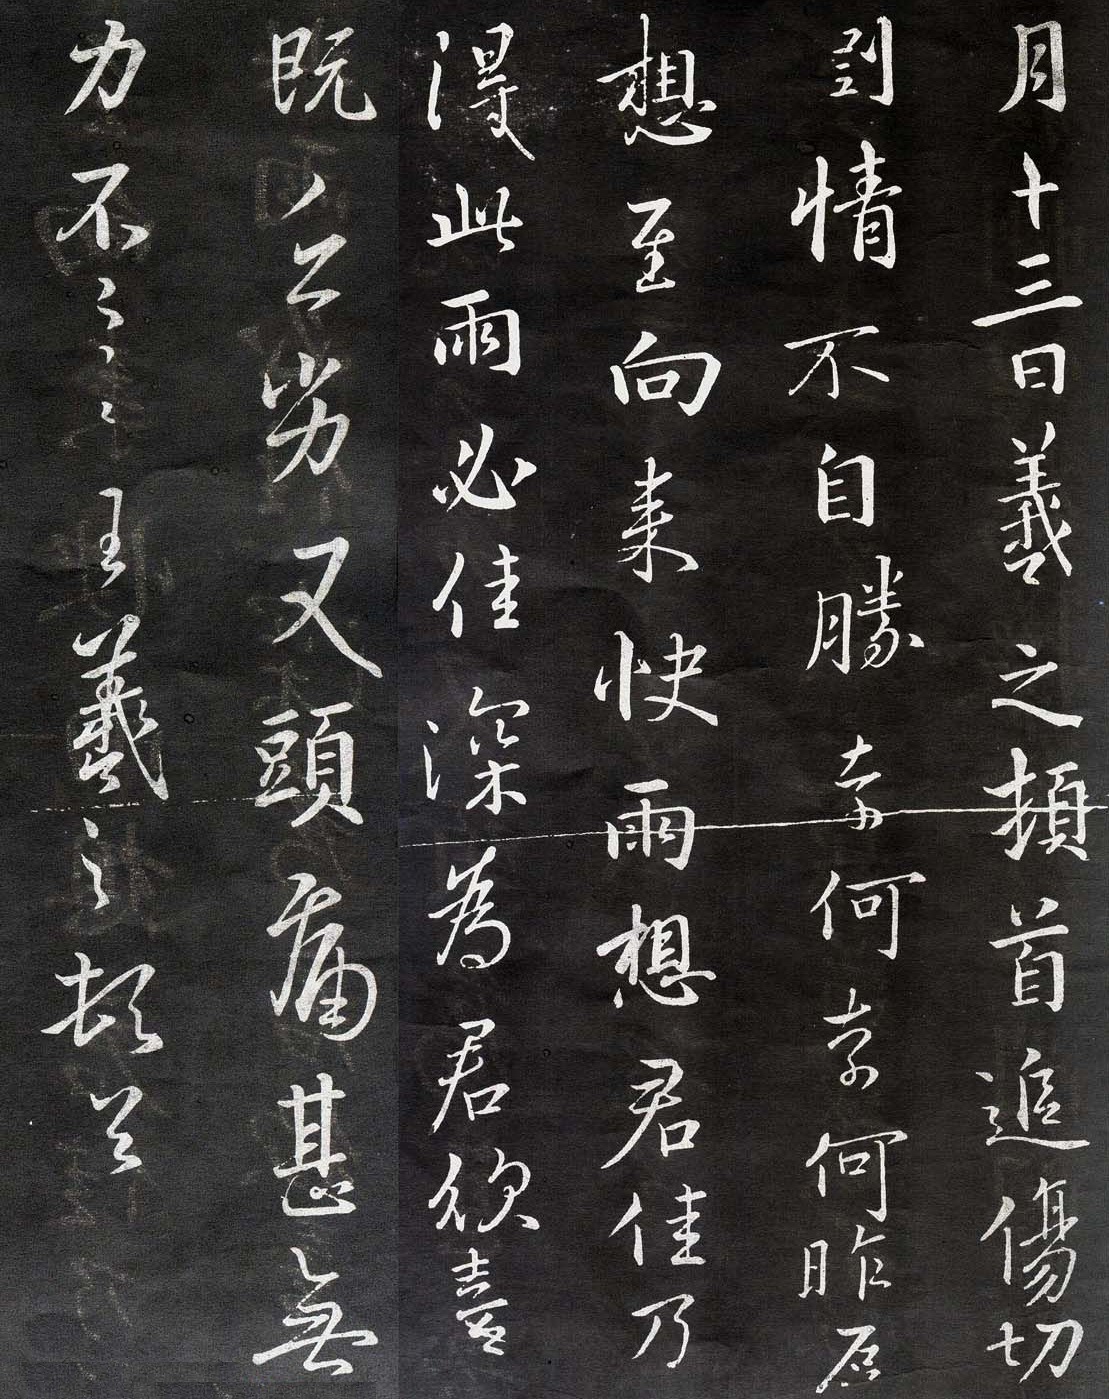 月十三日羲之頓首追傷切
剝情不自勝奈何奈何昨
想至向来快雨想君佳乃
得此雨必佳深為君欲喜
既劣又頭痛甚無
力不一一王羲之頓首